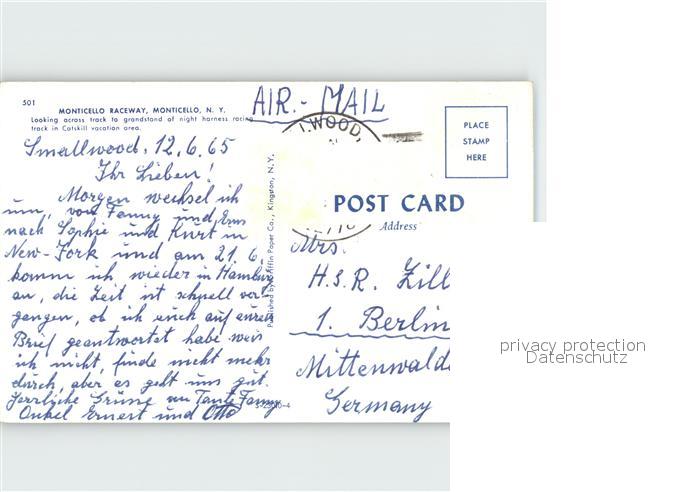 501
MONTICELLO RACEWAY, MONTICELLO, N. Y.
Looking across track to grandstand of night harness racing
track in Catskill vacation area.
AIR.- MAIL
WOOD,
PLACE
STAMP
HERE
POST CARD
Address
Published by Griffin Paper Co., Kingston, N. Y.
Smallwood, 12.6.65
Ihr Lieben!
Morgen wechsel ich
um, von Fanny und Erns
nach Sophie und Kurt in
New-York und am 21.6.
komm ich wieder in Hamburg
an, die Zeit ist schnell ver-
gangen, ob ich euch auf euren
Brief geantwortet habe weis
ich nicht, finde nicht mehr
durch, aber es geht uns gut.
Herzliche Grüsse von Tante Fanny
Onkel Ernest und Otto
Mrs.
H.S.R. Zill
1. Berlin
Mittenwalde
Germany
privacy protection
Datenschutz